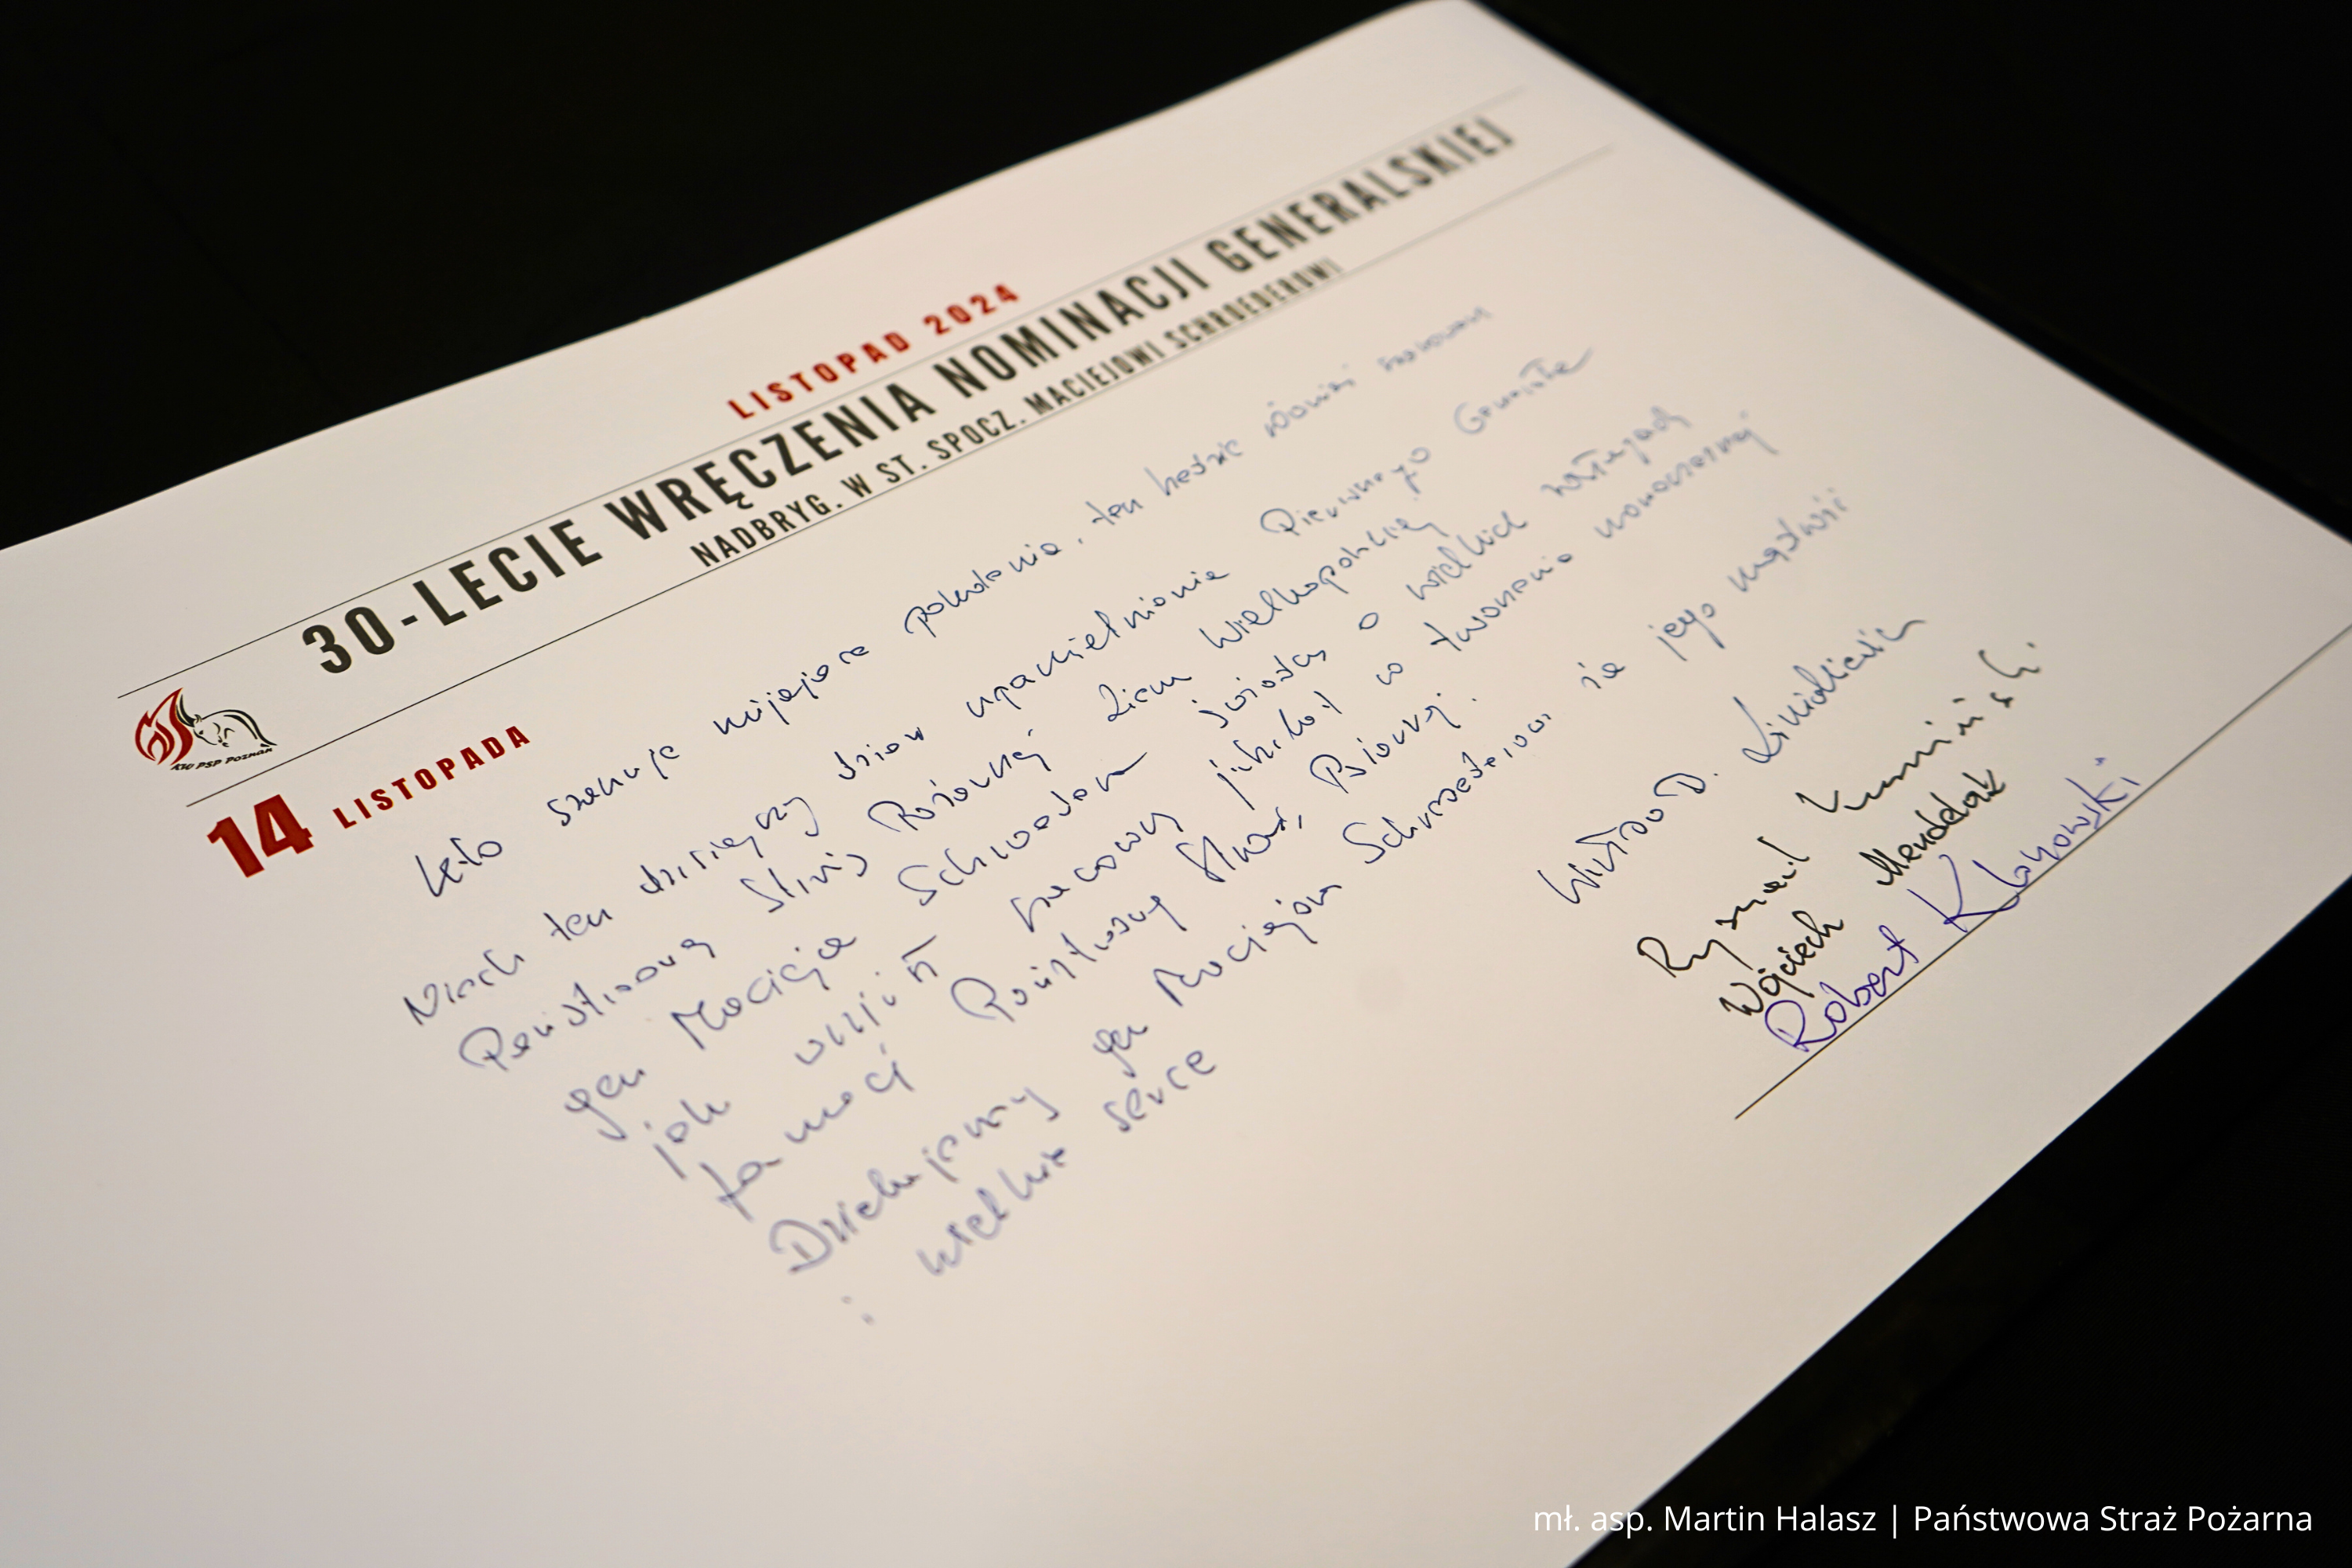 LISTOPAD 2024
30-LECIE WRĘCZENIA NOMINACJI GENERALSKIEJ
NADBRYG. W ST. SPOCZ. MACIEJOWI SCHROEDEROWI
KW PSP POZNAŃ
14 LISTOPADA
Kto szanuje mijające pokolenia, ten będzie również szanowany
Niech ten dzisiejszy dzień upamiętnienia Pierwszego Generała
Państwowej Straży Pożarnej Ziemi Wielkopolskiej
gen Macieja Schroedera świadczy o wielkich zasługach
jak
tamaci Państwowej Straży Pożarnej.
Dziękujemy gen Maciejowi Schroederowi za jego mądrość
i wielkie serce
Witold
Ryszard Kamiński
Wojciech Mendelak
Robert Klonowski
mł. asp. Martin Halasz | Państwowa Straż Pożarna